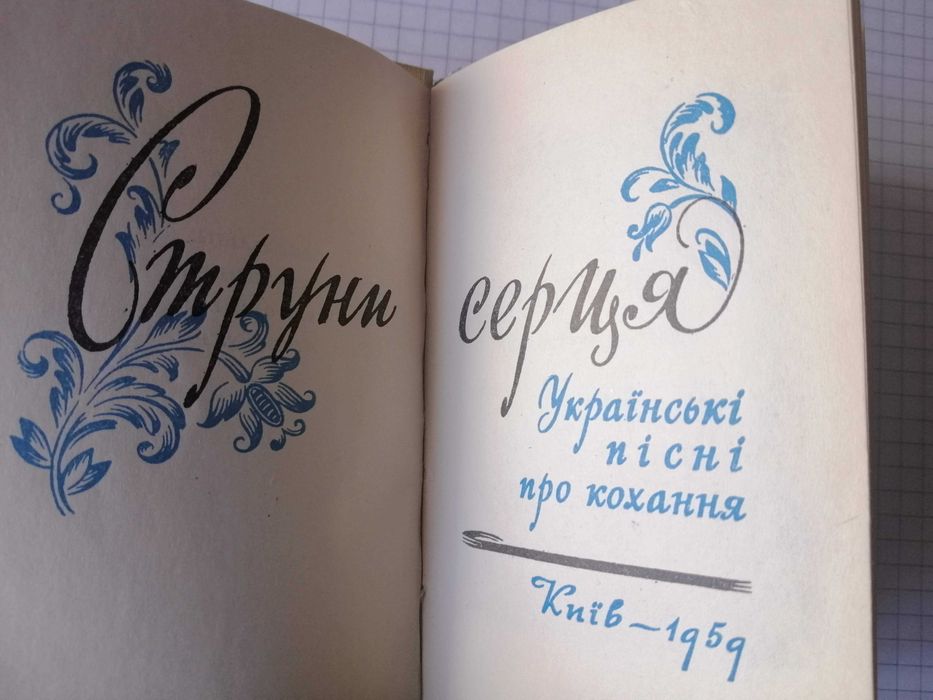 Струни серця
Українські
пісні
про кохання
Київ — 1959